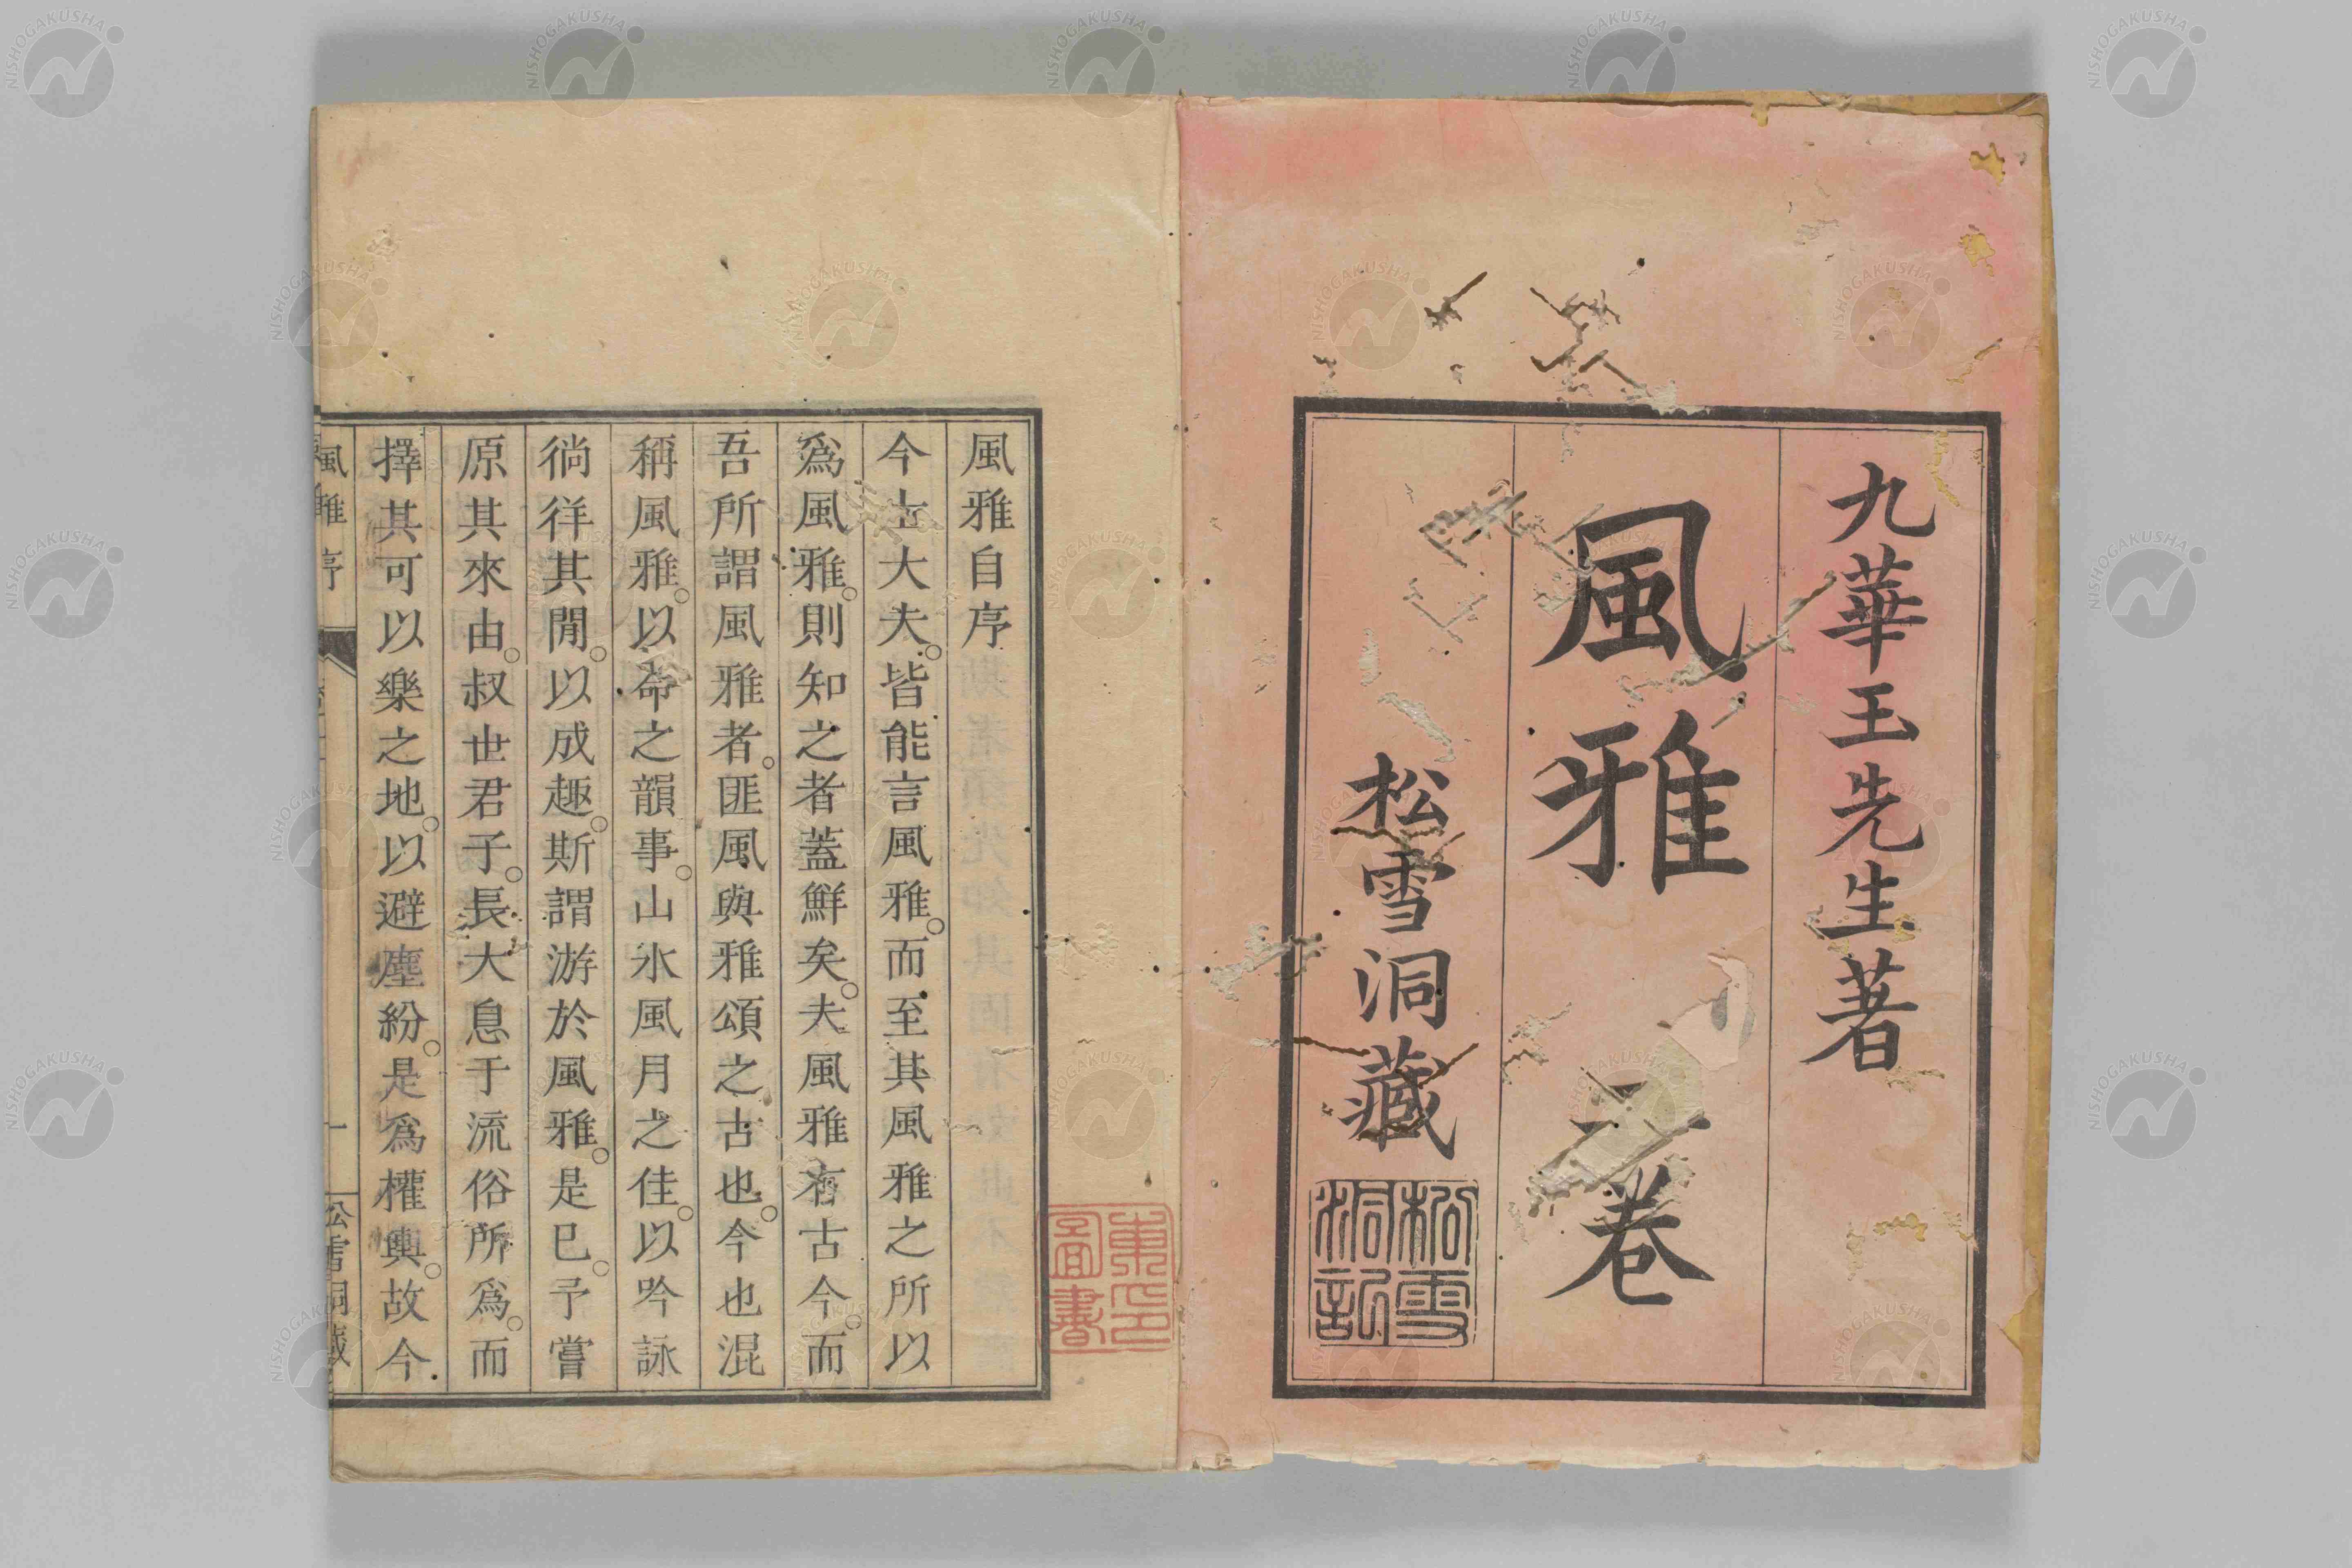 九華王先生著
風雅 卷
松雪洞藏
松雪洞記
風雅自序
今士大夫。皆能言風雅。而至其風雅之所以
爲風雅。則知之者蓋鮮矣。夫風雅有古今。而
吾所謂風雅者。匪風與雅頌之古也。今也混
稱風雅。以命之韻事。山水風月之佳。以吟詠
徜徉其閒。以成趣。斯謂游於風雅。是已。予嘗
原其來由。叔世君子。長大息于流俗所爲。而
擇其可以樂之地。以避塵紛。是爲權輿。故今
風雅序
一
松雪洞藏
NISHOGAKUSHA